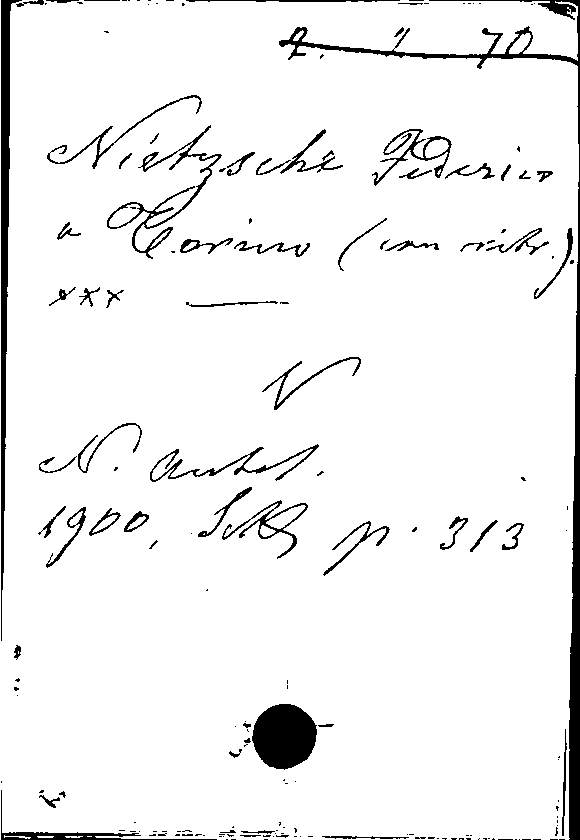 2. 2 70
Nietzsche Federico
a Torino (con ritr.).
xxx —
V
N. Antol.
1900, p. 313